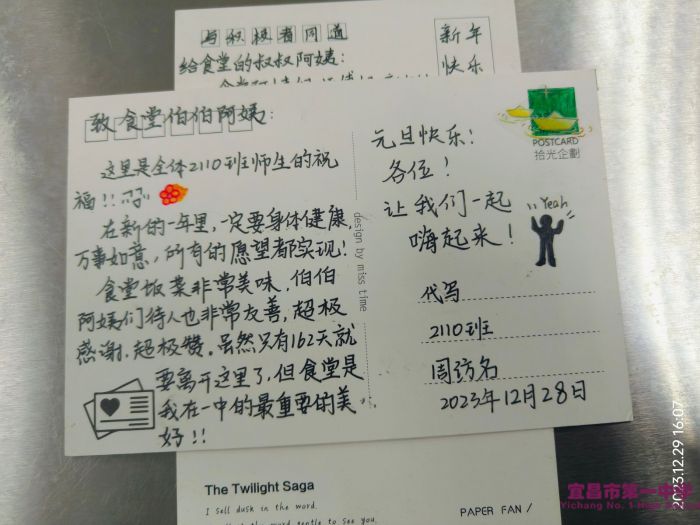 与积极者同道
给食堂的叔叔阿姨：
新年
快乐
致食堂伯伯阿姨：
这里是全体2110班师生的祝
福！！
在新的一年里，一定要身体健康，
万事如意，所有的愿望都实现！
食堂饭菜非常美味，伯伯
阿姨们待人也非常友善，超极
感谢，超极赞。虽然只有162天就
要离开这里了，但食堂是
我在一中的最重要的美
好！！
design by miss time
POSTCARD
拾光企劃
元旦快乐！
各位！
让我们一起
嗨起来！
Yeah
代写
2110班
周访名
2023年12月28日
The Twilight Saga
I sell dusk in the word.
PAPER FAN /
2023.12.29 16:07
宜昌市第一中学
Yichang No.1 High